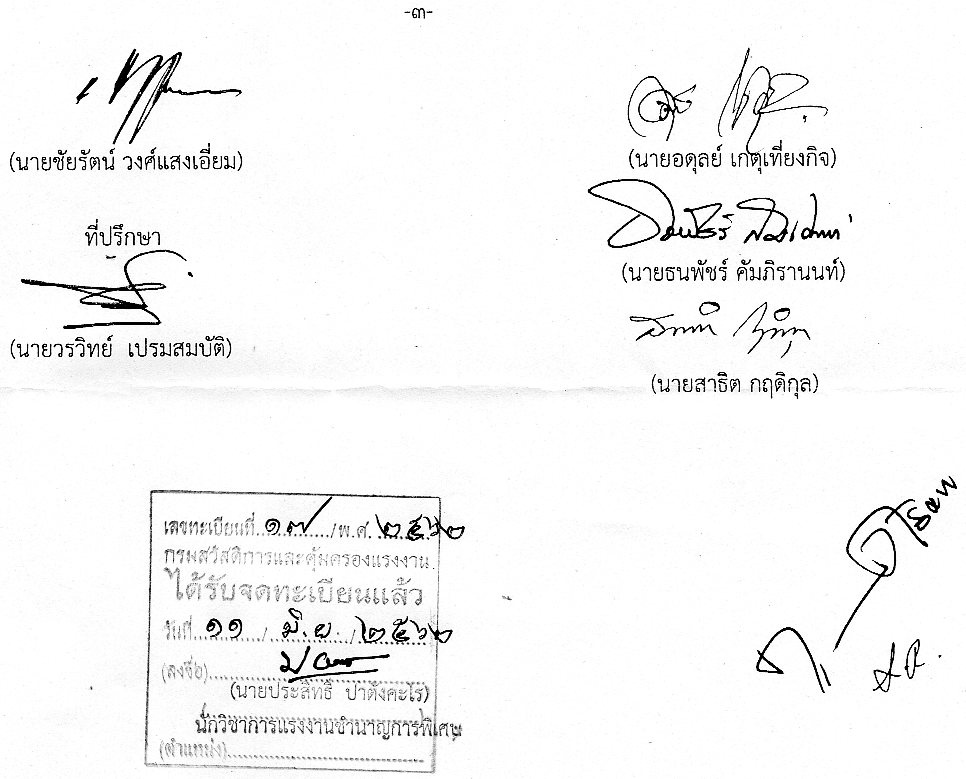 -๓-
(นายชัยรัตน์ วงศ์แสงเอี่ยม)
ที่ปรึกษา
(นายวรวิทย์ เปรมสมบัติ)
(นายอดุลย์ เกตุเที่ยงกิจ)
(นายธนพัชร์ คัมภิรานนท์)
(นายสาธิต กฤดิกุล)
เลขทะเบียนที่ ๑๗ /พ.ศ. ๒๕๖๒
กรมสวัสดิการและคุ้มครองแรงงาน
ได้รับจดทะเบียนแล้ว
วันที่ ๑๑ / มิ.ย. / ๒๕๖๒
(ลงชื่อ)
(นายประสิทธิ์ ปาตังคะโร)
นักวิชาการแรงงานชำนาญการพิเศษ
(ตำแหน่ง)